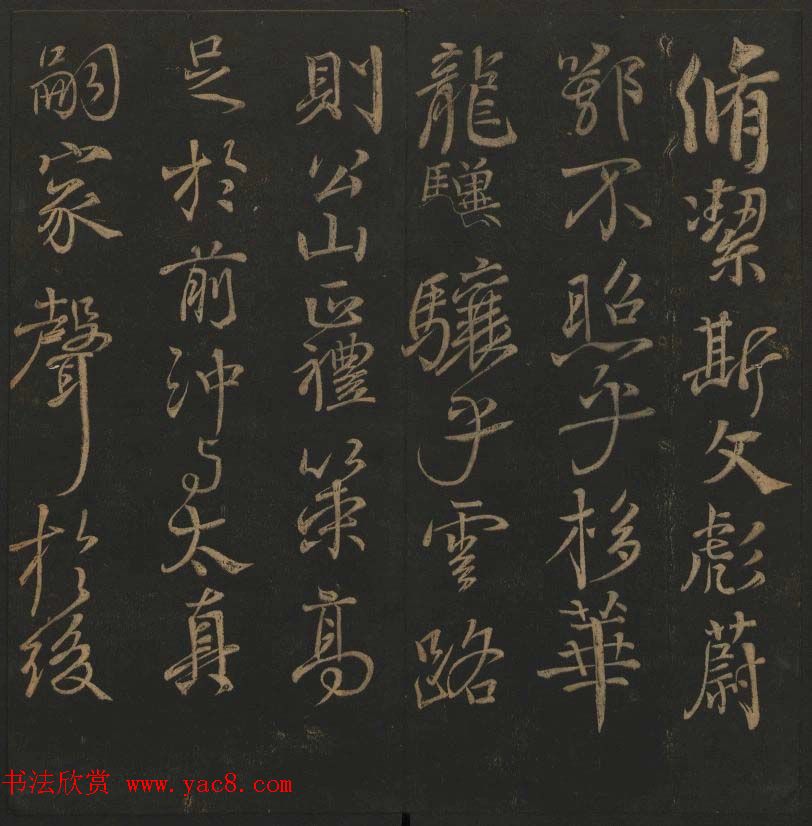 脩潔斯文彪蔚
鄂不照乎棣華
龍驥驤乎雲路
則公山正禮策高
足於前沖与太真
嗣家聲於後
书法欣赏 www.yac8.com